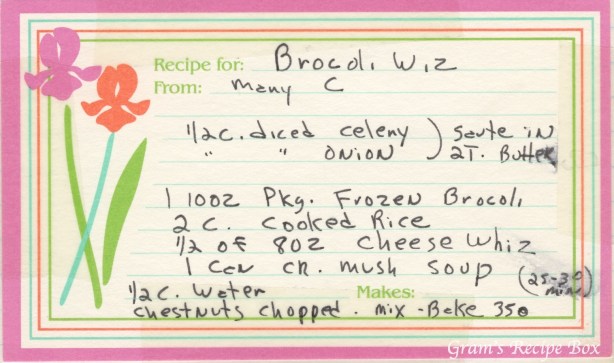 Recipe for: Brocoli Wiz
From: Many C
1/2 c. diced celeny ) Saute in
" " onion ) 2T. Butter
1 10oz Pkg. Frozen Brocoli
2 c. cooked Rice
1/2 of 8oz cheese whiz
1 can cr. mush soup (25-30 mins)
1/2 c. water Makes:
chestnuts chopped. mix - Bake 350
Gram's Recipe Box